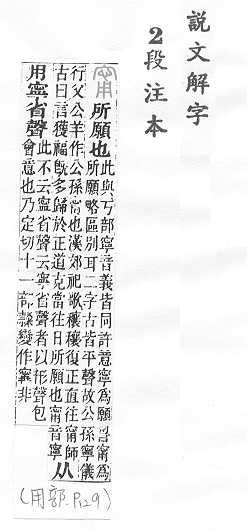 說文解字
2段注本
甯所願也此與丂部寧音義皆同許意寧為願䛐甯為
所願略區別耳二字古皆平聲故公孫寧儀
行父公羊作公孫甯也漢郊祀歌穰穰復正直往甯師
古曰言獲福既多歸於正道克當往日所願也甯音寧
从
用寧省聲此不云寍省聲云寧省聲者以形聲包
會意也乃定切十一部隸變作寗非
(用部.P.129)